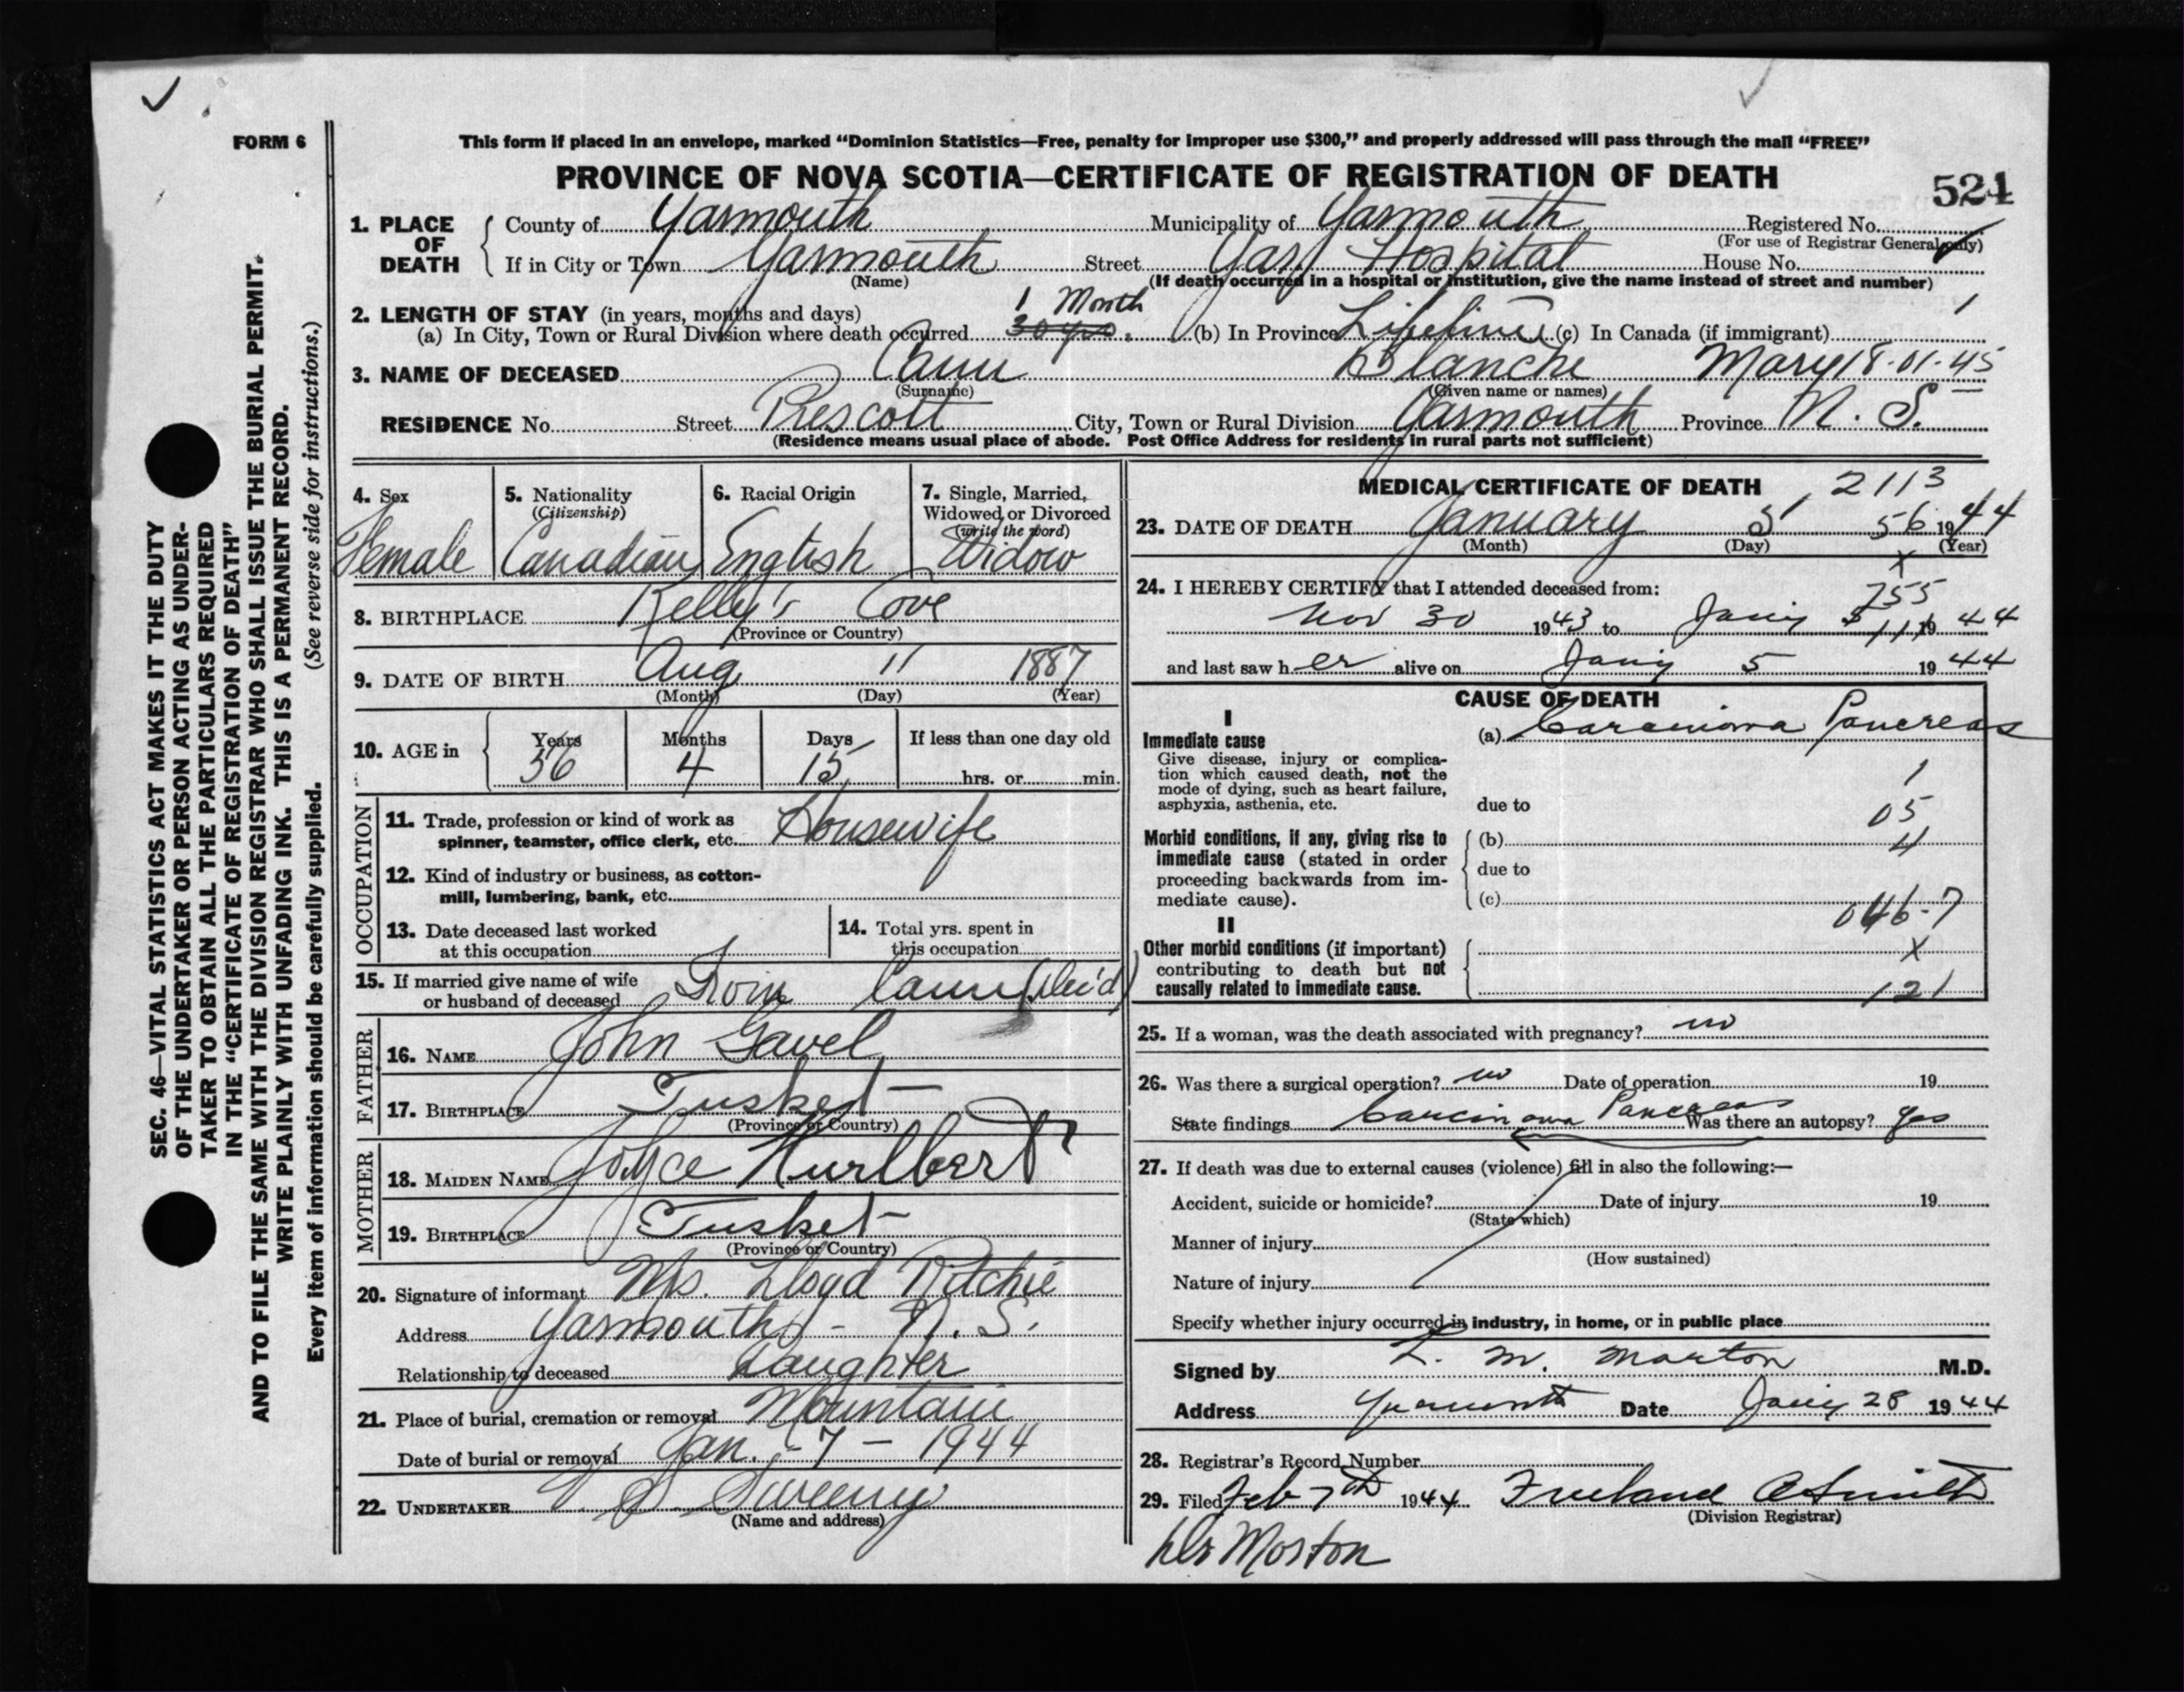 FORM 6
This form if placed in an envelope, marked “Dominion Statistics—Free, penalty for improper use $300,” and properly addressed will pass through the mail “FREE”
PROVINCE OF NOVA SCOTIA—CERTIFICATE OF REGISTRATION OF DEATH
524
1. PLACE OF DEATH
County of Yarmouth Municipality of Yarmouth Registered No.
(For use of Registrar General only)
If in City or Town Yarmouth Street Yar. Hospital House No.
(Name)
(If death occurred in a hospital or institution, give the name instead of street and number)
2. LENGTH OF STAY (in years, months and days) 1 Month
(a) In City, Town or Rural Division where death occurred 30 yrs. (b) In Province Lifetime (c) In Canada (if immigrant) 1
3. NAME OF DECEASED Cann Blanche Mary 18-01-45
(Surname) (Given name or names)
RESIDENCE No. Street Prescott City, Town or Rural Division Yarmouth Province N. S.
(Residence means usual place of abode. Post Office Address for residents in rural parts not sufficient)
4. Sex
Female
5. Nationality
(Citizenship)
Canadian
6. Racial Origin
English
7. Single, Married,
Widowed or Divorced
(write the word)
Widow
8. BIRTHPLACE Kelly's Cove
(Province or Country)
9. DATE OF BIRTH Aug 11 1887
(Month) (Day) (Year)
10. AGE in
Years Months Days If less than one day old
56 4 15 hrs. or min.
OCCUPATION
11. Trade, profession or kind of work as
spinner, teamster, office clerk, etc. Housewife
12. Kind of industry or business, as cotton-
mill, lumbering, bank, etc.
13. Date deceased last worked
at this occupation
14. Total yrs. spent in
this occupation
15. If married give name of wife
or husband of deceased Cann (Dec'd)
FATHER
16. NAME John Gavel
17. BIRTHPLACE Tusket
(Province or Country)
MOTHER
18. MAIDEN NAME Joyce Hurlbert
19. BIRTHPLACE Tusket
(Province or Country)
20. Signature of informant Mrs. Lloyd Ritchie
Address Yarmouth - N. S.
Relationship to deceased Daughter
21. Place of burial, cremation or removal Mountain
Date of burial or removal Jan. - 7 - 1944
22. UNDERTAKER V S Sweeny
(Name and address)
MEDICAL CERTIFICATE OF DEATH 2113
23. DATE OF DEATH January 5 56 1944
(Month) (Day) (Year)
x
24. I HEREBY CERTIFY that I attended deceased from:
755
Nov 30 1943 to Jany 5 111 1944
and last saw her alive on Jany 5 1944
CAUSE OF DEATH
I
Immediate cause
Give disease, injury or complica-
tion which caused death, not the
mode of dying, such as heart failure,
asphyxia, asthenia, etc.
(a) Carcinoma Pancreas
1
due to
05
Morbid conditions, if any, giving rise to
immediate cause (stated in order
proceeding backwards from im-
mediate cause).
(b) 4
due to
(c) 046-7
II
Other morbid conditions (if important)
contributing to death but not
causally related to immediate cause.
x
121
25. If a woman, was the death associated with pregnancy? no
26. Was there a surgical operation? no Date of operation 19
State findings Carcinoma Pancreas Was there an autopsy? yes
27. If death was due to external causes (violence) fill in also the following:—
Accident, suicide or homicide? Date of injury 19
(State which)
Manner of injury
(How sustained)
Nature of injury
Specify whether injury occurred in industry, in home, or in public place
Signed by L. M. Morton M.D.
Address Yarmouth Date Jany 28 1944
28. Registrar's Record Number
29. Filed Feb 7th 1944 Freeland A Smith
(Division Registrar)
Dr Morton
SEC. 46—VITAL STATISTICS ACT MAKES IT THE DUTY
OF THE UNDERTAKER OR PERSON ACTING AS UNDER-
TAKER TO OBTAIN ALL THE PARTICULARS REQUIRED
IN THE “CERTIFICATE OF REGISTRATION OF DEATH”
AND TO FILE THE SAME WITH THE DIVISION REGISTRAR WHO SHALL ISSUE THE BURIAL PERMIT.
WRITE PLAINLY WITH UNFADING INK. THIS IS A PERMANENT RECORD.
Every item of information should be carefully supplied. (See reverse side for instructions.)